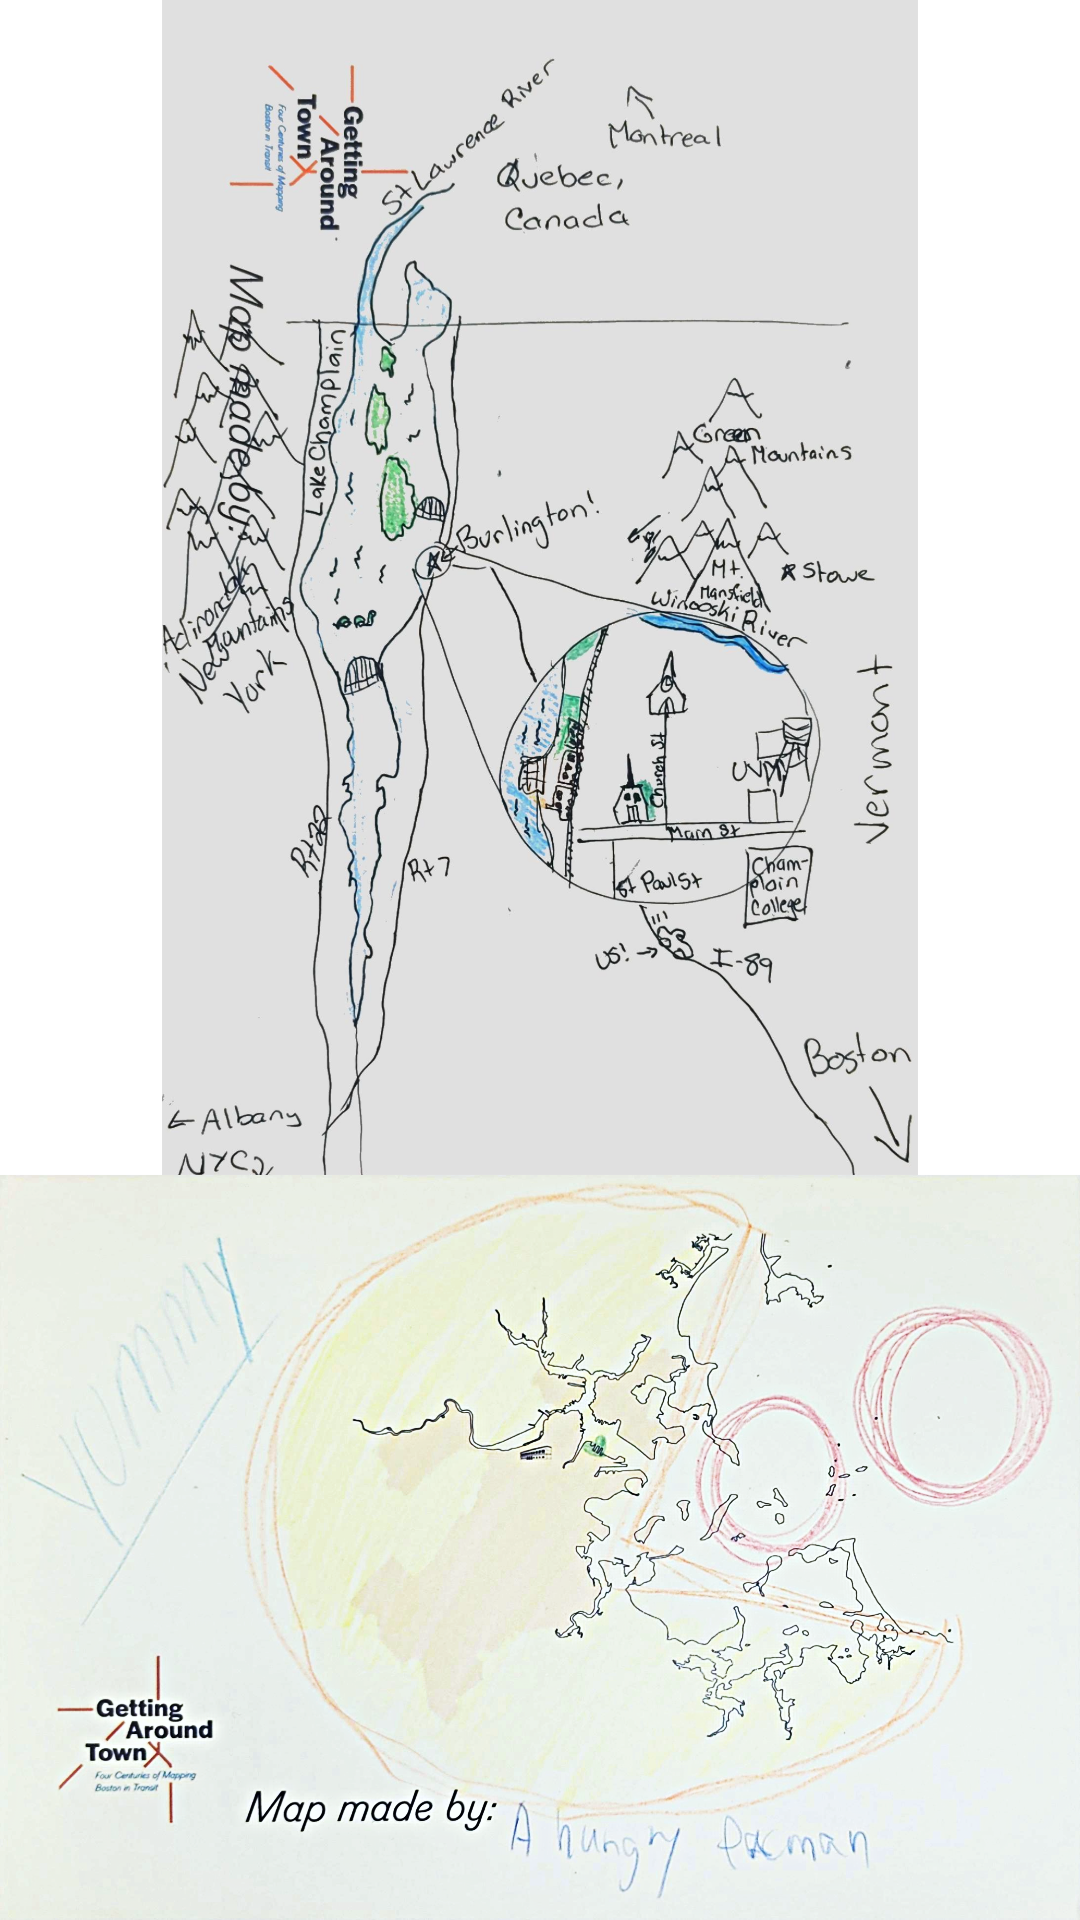 Getting
Around
Town
Four Centuries of Mapping
Boston in Transit
Map made by:
St Lawrence River
Montreal
Quebec,
Canada
Lake Champlain
Green
Mountains
Burlington!
Mt.
Mansfield
Stowe
Winooski River
Adirondak
Mountains
New
York
Vermont
Church St
UVM
Main St
St Paul St
Cham-
plain
College
Rt 22
Rt 7
US!
I-89
Boston
Albany
NYC
Yummy
Getting
Around
Town
Four Centuries of Mapping
Boston in Transit
Map made by: A hungry Pacman